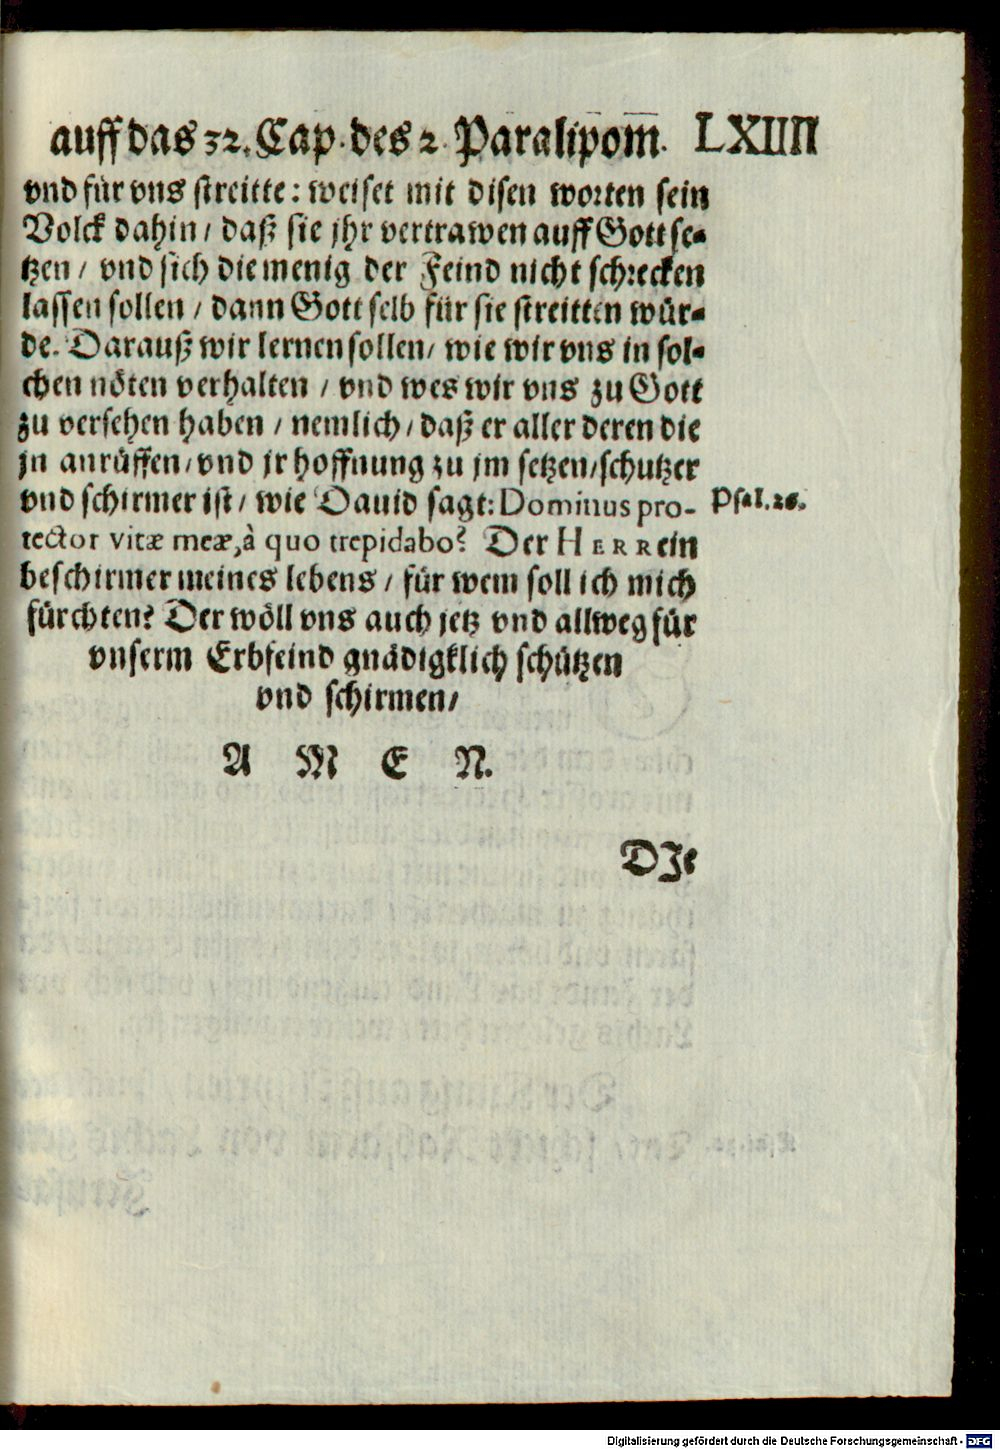 auff das 32. Cap. des 2. Paralipom. LXIIII
vnd für vns streitte: weiset mit disen worten sein
Volck dahin / daß sie jhr vertrawen auff Gott se-
tzen / vnd sich die menig der Feind nicht schrecken
lassen sollen / dann Gott selb für sie streitten wür-
de. Darauß wir lernen sollen / wie wir vns in sol-
chen nöten verhalten / vnd wes wir vns zu Gott
zu versehen haben / nemlich / daß er aller deren die
jn anrüffen / vnd jr hoffnung zu jm setzen / schutzer
vnd schirmer ist / wie Dauid sagt: Dominus pro-
Psal. 26.
tector vitæ meæ, à quo trepidabo? Der HERR ein
beschirmer meines lebens / für wem soll ich mich
fürchten? Der wöll vns auch jetz vnd allweg für
vnserm Erbfeind gnädigklich schützen
vnd schirmen /
A M E N.
DJe
Digitalisierung gefördert durch die Deutsche Forschungsgemeinschaft - DFG